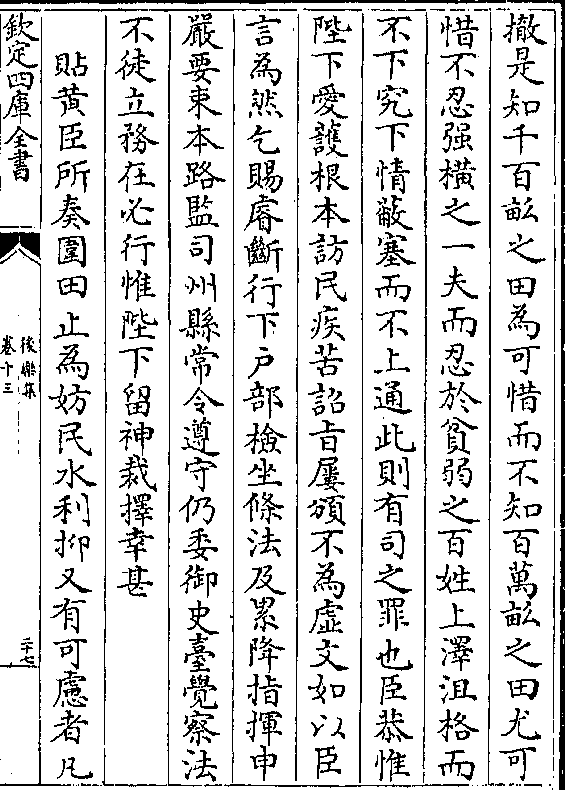 撤是知千百畝之田為可惜而不知百萬畝之田尤可
惜不忍强橫之一夫而忍於貧弱之百姓上澤沮格而
不下究下情蔽塞而不上通此則有司之罪也臣恭惟
陛下愛護根本訪民疾苦詔㫖屢頒不為虚文如以臣
言為然乞賜睿斷行下户部檢坐條法及累降指揮申
嚴要束本路監司州縣常令遵守仍委御史臺覺察法
不徒立務在必行惟陛下留神裁擇幸甚
貼黄臣所奏圍田止為妨民水利抑又有可慮者凡
欽定四庫全書
後樂集
卷十三
二十七